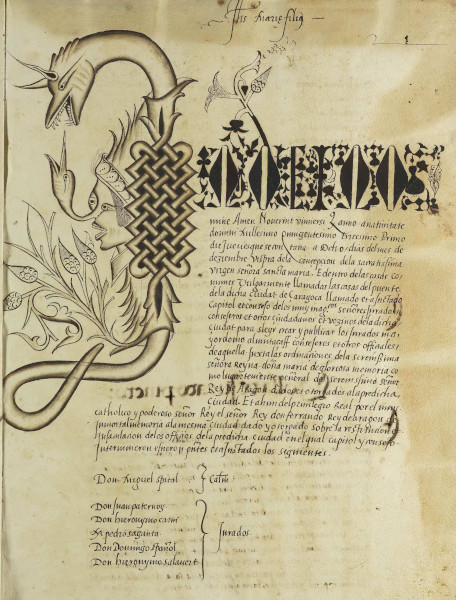 Jhs marie filiq
1
nuire Amen Noverint universi Q anno a nativitate
domini millesimo quingentesimo tricesimo primo
die Jueves que se contava a siete dias del mes de
dezembre vispra de la concepcion de la sacratissima
virgen señora sancta maria. E dentro de las casas co-
munes vulgarmente llamadas las casas del puente
de la dicha ciudat de Caragoça llamado et ajustado
Capitol et consejo de los muy magcos señores jurados
consejeros et otros ciudadanos et vezinos de la dicha
ciudat para slegir crear y publicar los jurados ma-
yordomo almutaçaff consejeros et otros officiales
de aquella juxta las ordinaciones de la serenissima
señora Reyna doña maria de gloriosa memoria co-
mo lugarteniente general del serenissimo señor
Rey de Aragon dados et otorgados a la predicha
ciudad. Et ahun del privilegio Real por el muy
catholico y poderoso señor Rey el señor Rey don ferrando Rey de aragon de
inmortal memoria a la mesma ciudad dado y otorgado sobre la
insaculacion de los officios de la predicha ciudad en el qual capitol y consejo
intervinieron fueron presentes et ajustados los siguientes.
Don Miguel spital
Don Juan paternoy
Don hieronymo
pedro saganta
Don Domingo spañol
Don hieronymo salavert
Jurados